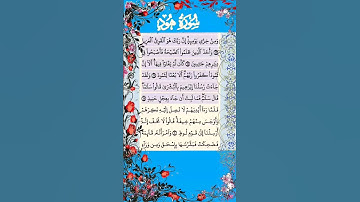 سُورَةُ هُودٍ
وَمِنْ خِزْىِ يَوْمِئِذٍ إِنَّ رَبَّكَ هُوَ ٱلْقَوِىُّ ٱلْعَزِيزُ
۝ وَأَخَذَ ٱلَّذِينَ ظَلَمُوا۟ ٱلصَّيْحَةُ فَأَصْبَحُوا۟ فِى
دِيَٰرِهِمْ جَٰثِمِينَ ۝ كَأَن لَّمْ يَغْنَوْا۟ فِيهَآ أَلَآ إِنَّ
ثَمُودَا۟ كَفَرُوا۟ رَبَّهُمْ أَلَا بُعْدًا لِّثَمُودَ ۝ وَلَقَدْ
جَآءَتْ رُسُلُنَآ إِبْرَٰهِيمَ بِٱلْبُشْرَىٰ قَالُوا۟ سَلَٰمًا
قَالَ سَلَٰمٌ فَمَا لَبِثَ أَن جَآءَ بِعِجْلٍ حَنِيذٍ ۝
فَلَمَّا رَءَآ أَيْدِيَهُمْ لَا تَصِلُ إِلَيْهِ نَكِرَهُمْ
وَأَوْجَسَ مِنْهُمْ خِيفَةً قَالُوا۟ لَا تَخَفْ إِنَّآ
أُرْسِلْنَآ إِلَىٰ قَوْمِ لُوطٍ ۝ وَٱمْرَأَتُهُۥ قَآئِمَةٌ
فَضَحِكَتْ فَبَشَّرْنَٰهَا بِإِسْحَٰقَ وَمِن وَرَآءِ